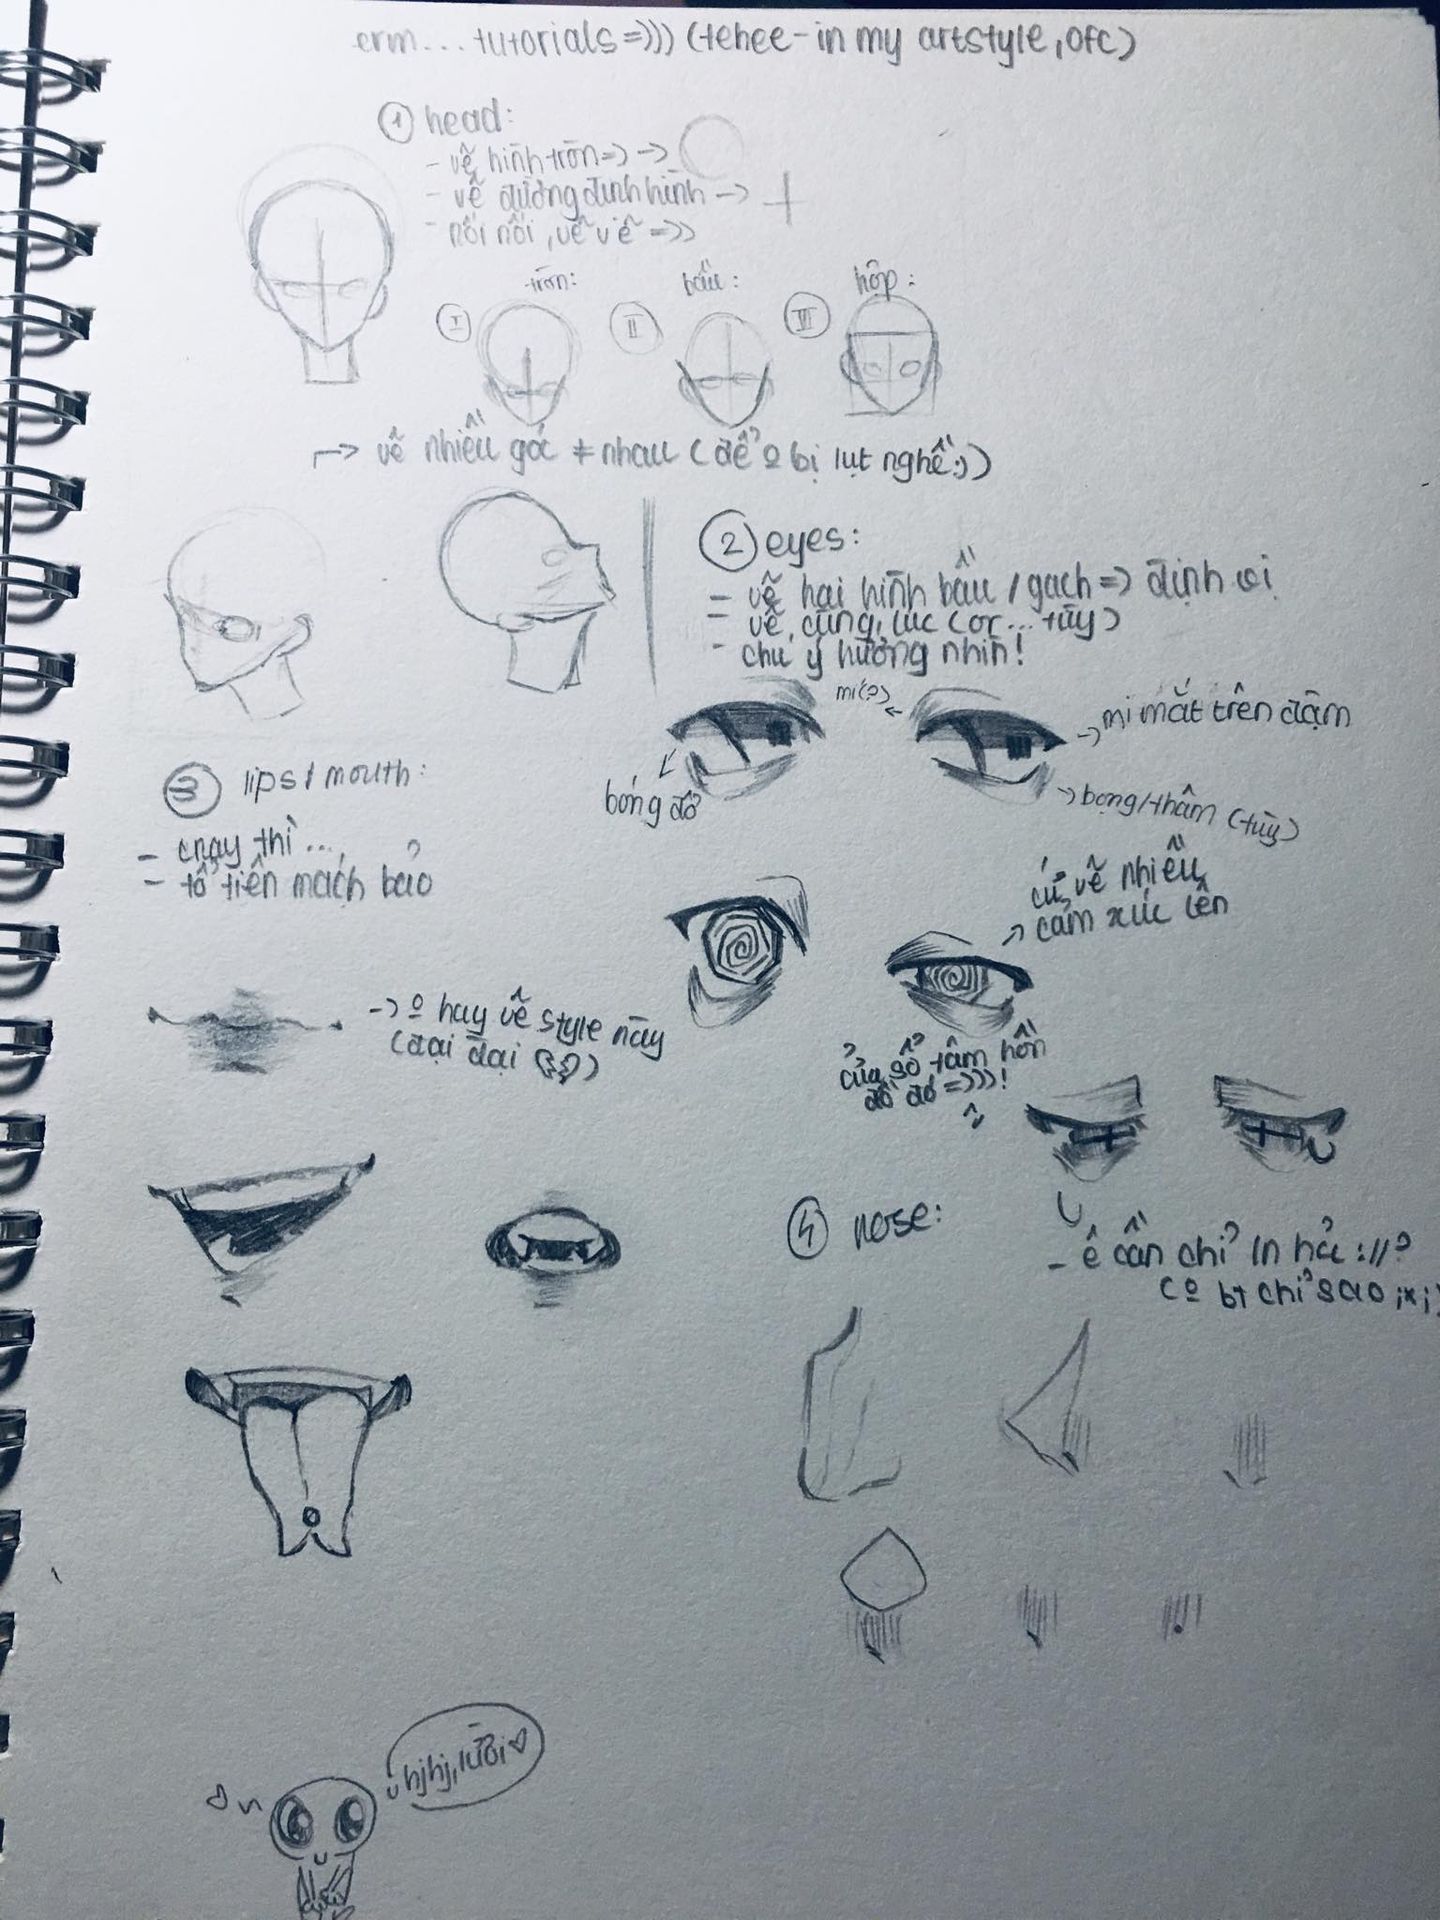 erm... tutorials =))) (tehee - in my artstyle, ofc)
① head:
- vẽ hình tròn => →
- vẽ đường định hình →
- nối nối, vẽ vẽ =>>
tròn:
bầu:
hộp:
I
II
III
→ vẽ nhiều góc ≠ nhau (để o bị lụt nghề :))
② eyes:
- vẽ hai hình bầu / gạch => định vị
- vẽ cùng lúc (or... tùy)
- chú ý hướng nhìn!
mí(?)
→ mi mắt trên đậm
bóng đổ
→ bọng/thâm (tùy)
→ cứ vẽ nhiều
cảm xúc lên
cửa sổ tâm hồn
đồ đó =)))!
③ lips/mouth:
- thì...
- tổ tiên mách bảo
→ o hay vẽ style này
(đại đại)
④ nose:
- ê cần chỉ ln hả ://?
(o bt chỉ sao ;×;)
hjhj, lười ♡